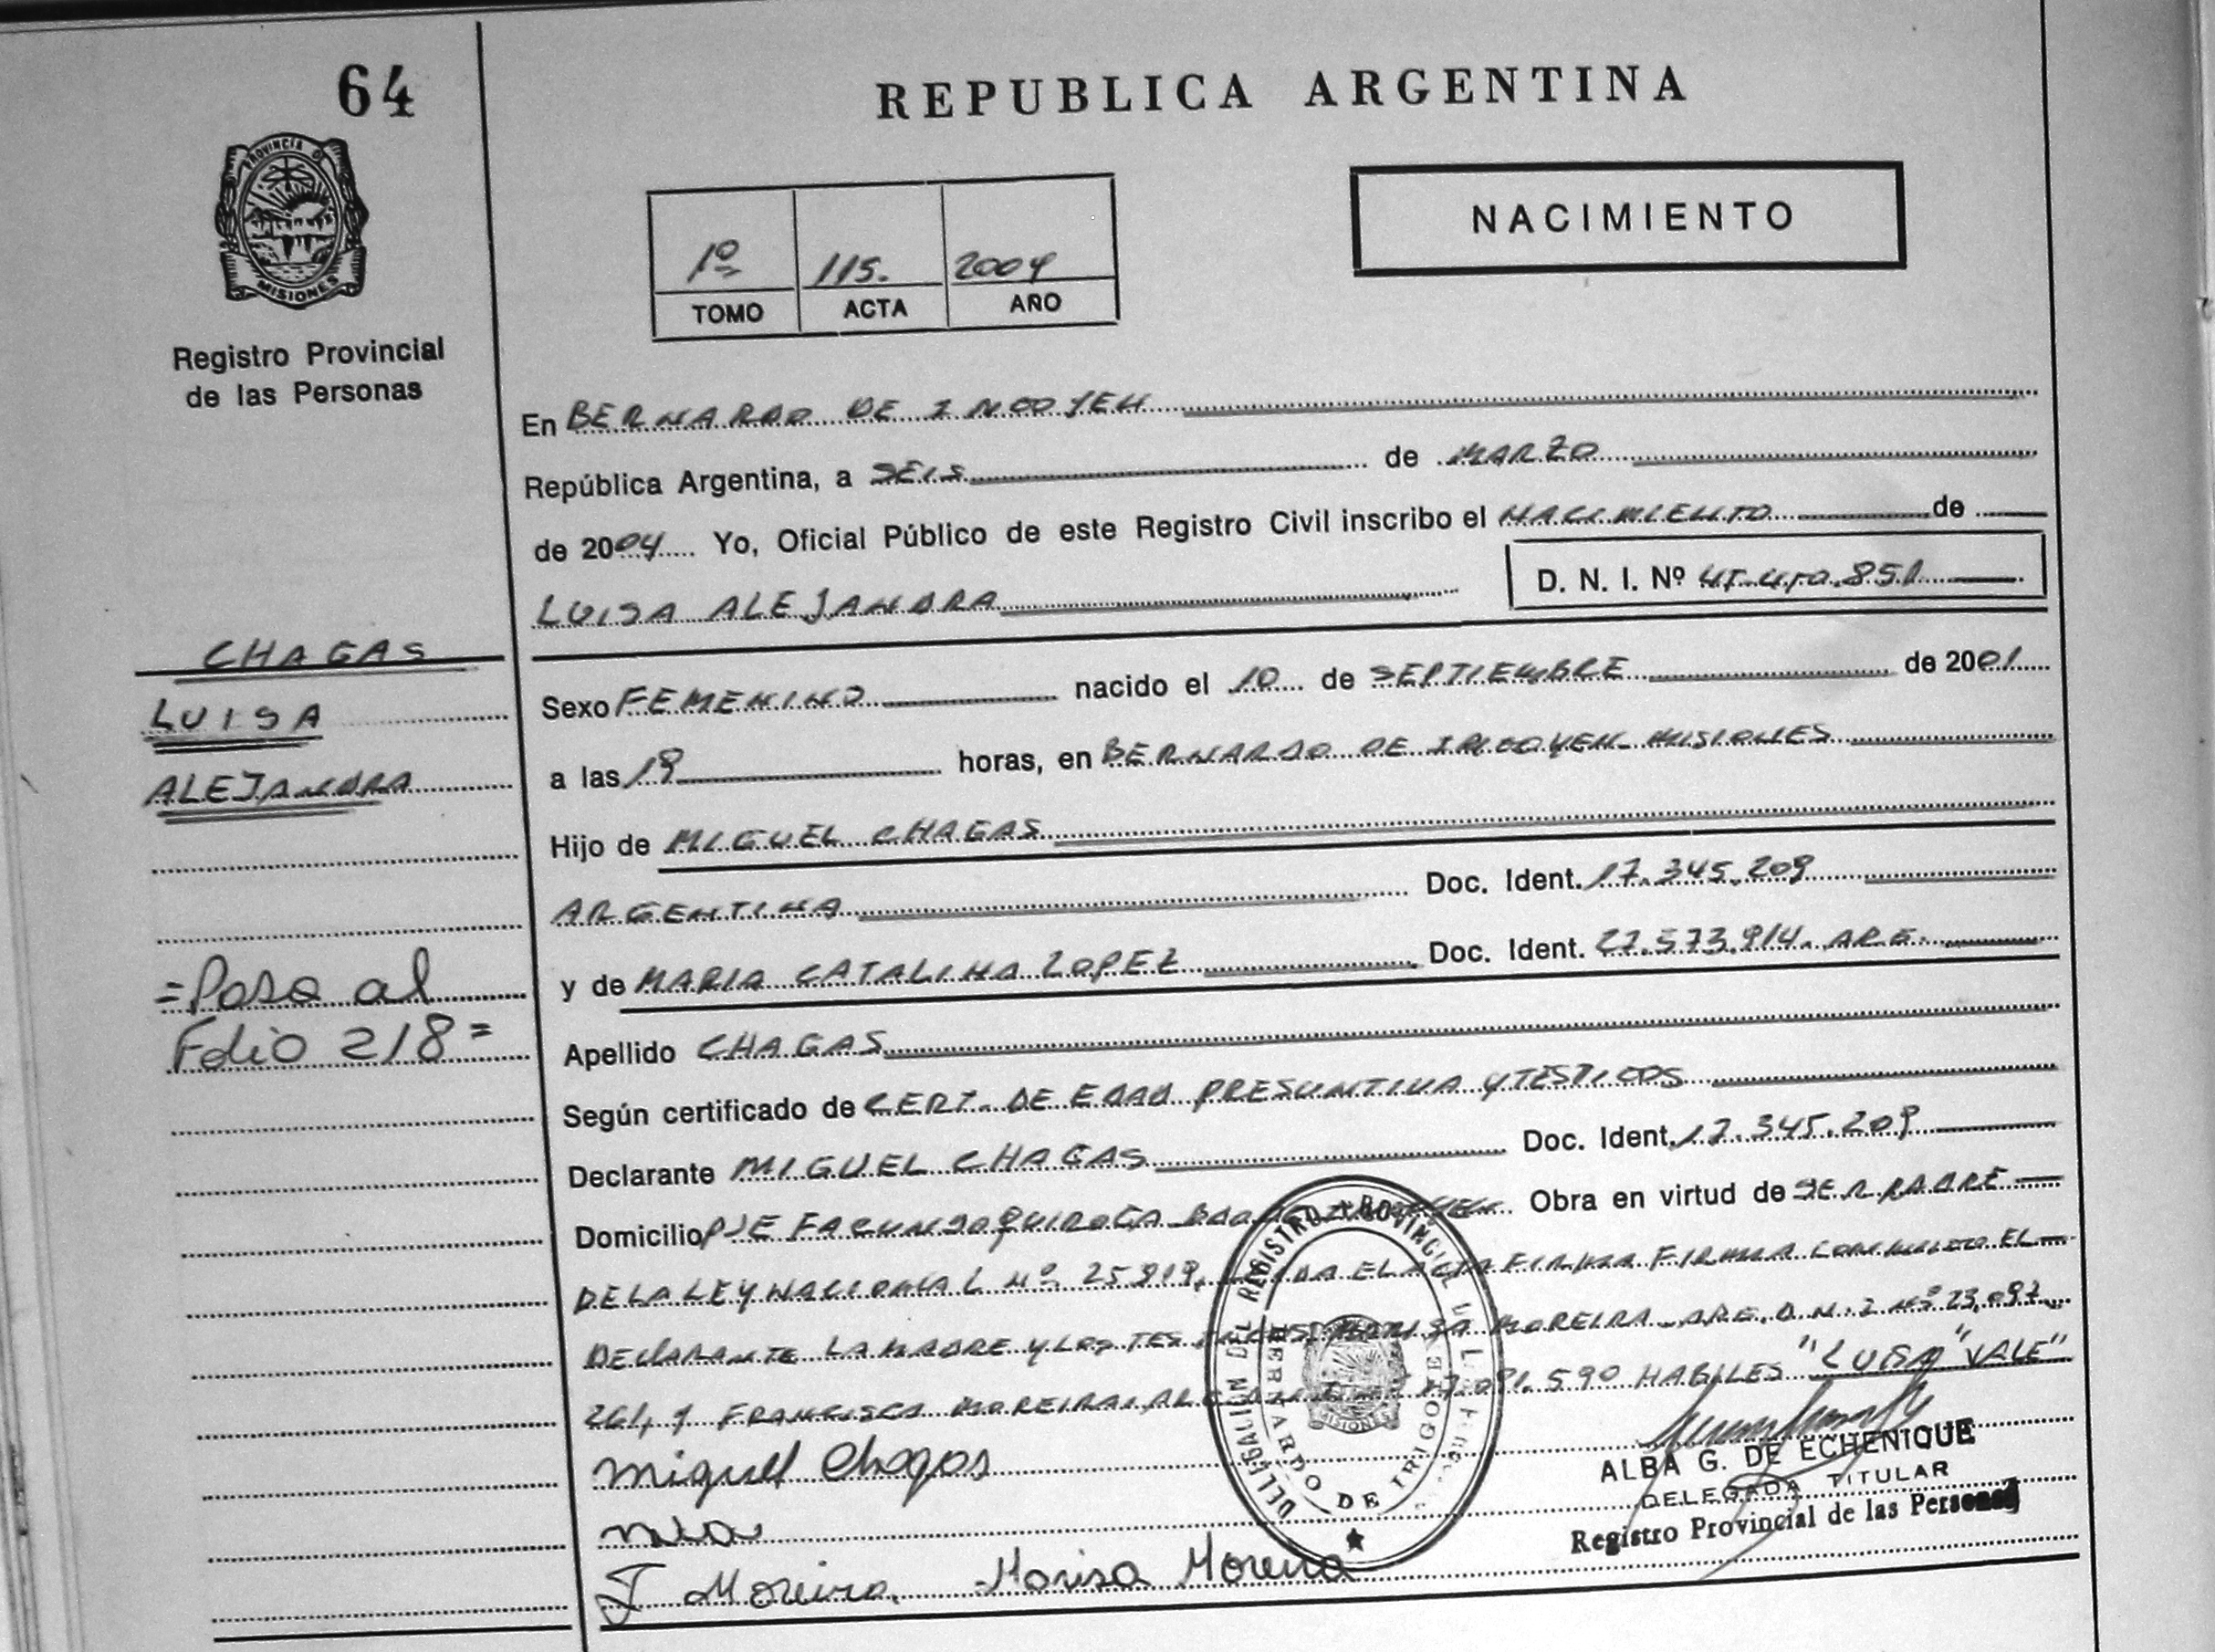 64
REPUBLICA ARGENTINA
PROVINCIA D
MISIONES
NACIMIENTO
1º 115. 2004
TOMO ACTA AÑO
Registro Provincial
de las Personas
En BERNARDO DE IRIGOYEN
República Argentina, a SEIS de MARZO
de 2004 Yo, Oficial Público de este Registro Civil inscribo el NACIMIENTO de
LUISA ALEJANDRA D. N. I. Nº
CHAGAS
LUISA
ALEJANDRA
Sexo FEMENINO nacido el 10 de SEPTIEMBRE de 2001
a las horas, en BERNARDO DE IRIGOYEN MISIONES
Hijo de MIGUEL CHAGAS
ARGENTINA Doc. Ident. 17.345.209
y de MARIA CATALINA LOPEZ Doc. Ident. 27.573.914. ARG.
=Pasa al
Folio 218=
Apellido CHAGAS
Según certificado de CERT. DE EDAD PRESUNTIVA Y TESTIGOS
Declarante MIGUEL CHAGAS Doc. Ident. 17.345.209
Domicilio PJE FACUNDO QUIROGA Obra en virtud de SER PADRE
DE LA LEY NACIONAL Nº 25819, EL ACTA FIRMA CONMIGO EL
DECLARANTE LA MADRE Y LOS TESTIGOS MARISA MOREIRA ARG. D.N.I Nº 23.097.
261, Y FRANCISCA MOREIRA 590 HABILES "LUISA" VALE"
Miguel Chagas
F Moreira. Marisa Moreira
DELEGACION DEL REGISTRO PROVINCIAL
BERNARDO DE IRIGOYEN
MISIONES
ALBA G. DE ECHENIQUE
DELEGADA TITULAR
Registro Provincial de las Personas